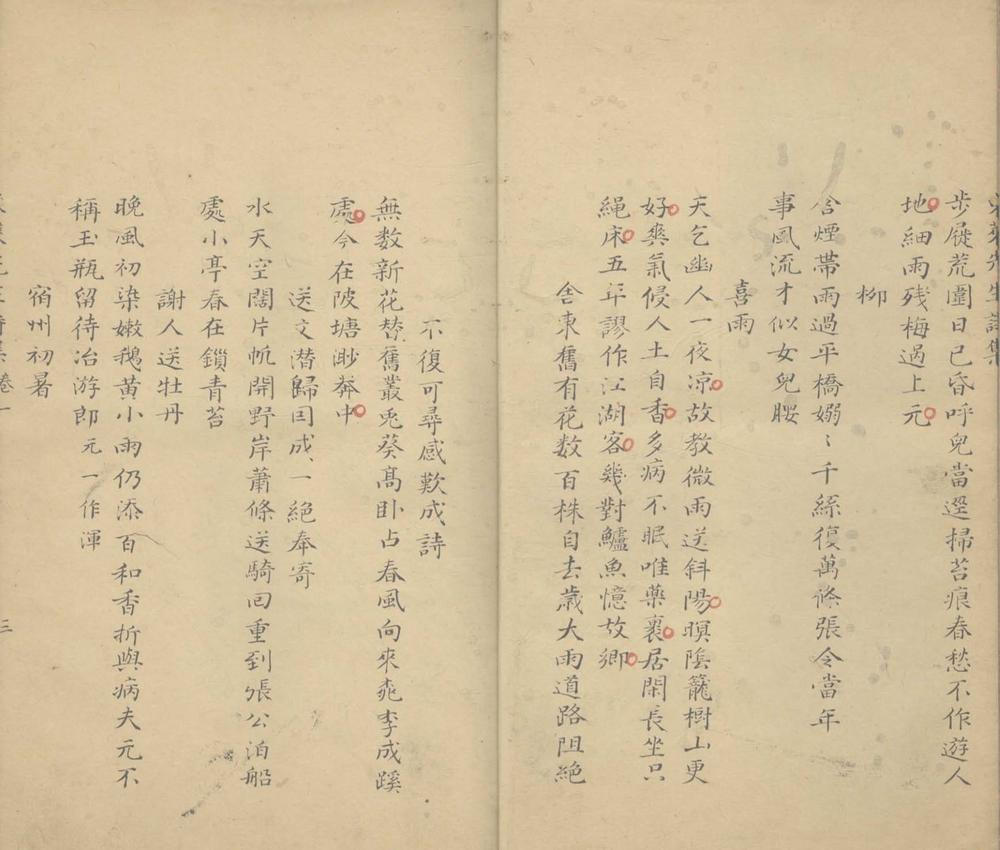 東萊先生詩集
步屧荒園日已昏呼兒當逕掃苔痕春愁不作遊人
地細雨残梅過上元
柳
含煙帶雨過平橋嫋〻千絲復萬條張令當年
事風流才似女兒腰
喜雨
天乞幽人一夜凉故教微雨送斜陽暝陰籠樹山更
好爽氣侵人土自香多病不眠唯藥裹居閑長坐只
繩床五年謬作江湖客幾對鱸魚憶故鄉
舍東舊有花数百株自去歲大雨道路阻絶
不復可尋感歎成詩
無数新花替舊叢兎葵髙卧占春風向來桃李成蹊
處今在陂塘渺莽中
送文潜歸因成一絶奉寄
水天空闊片帆開野岸蕭條送騎回重到張公泊船
處小亭春在鎖青苔
謝人送牡丹
晚風初染嫩鵝黄小雨仍添百和香折與病夫元不
稱玉瓶留待冶游郎元一作渾
宿州初暑
三